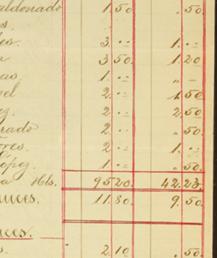 aldonado 1.50 .50
s
les. 3. -- 1. --
a 3.50 1.20
as 1. -- . --
el 2. -- 1.50
ez. 2. -- 2.50
rado 2. -- .50
rres. 2. -- 1. --
ópez 1. -- .50
a 16ls. 95.20. 42.25
uces. 11.80 9.50
uces.
s. 2.10 .50.